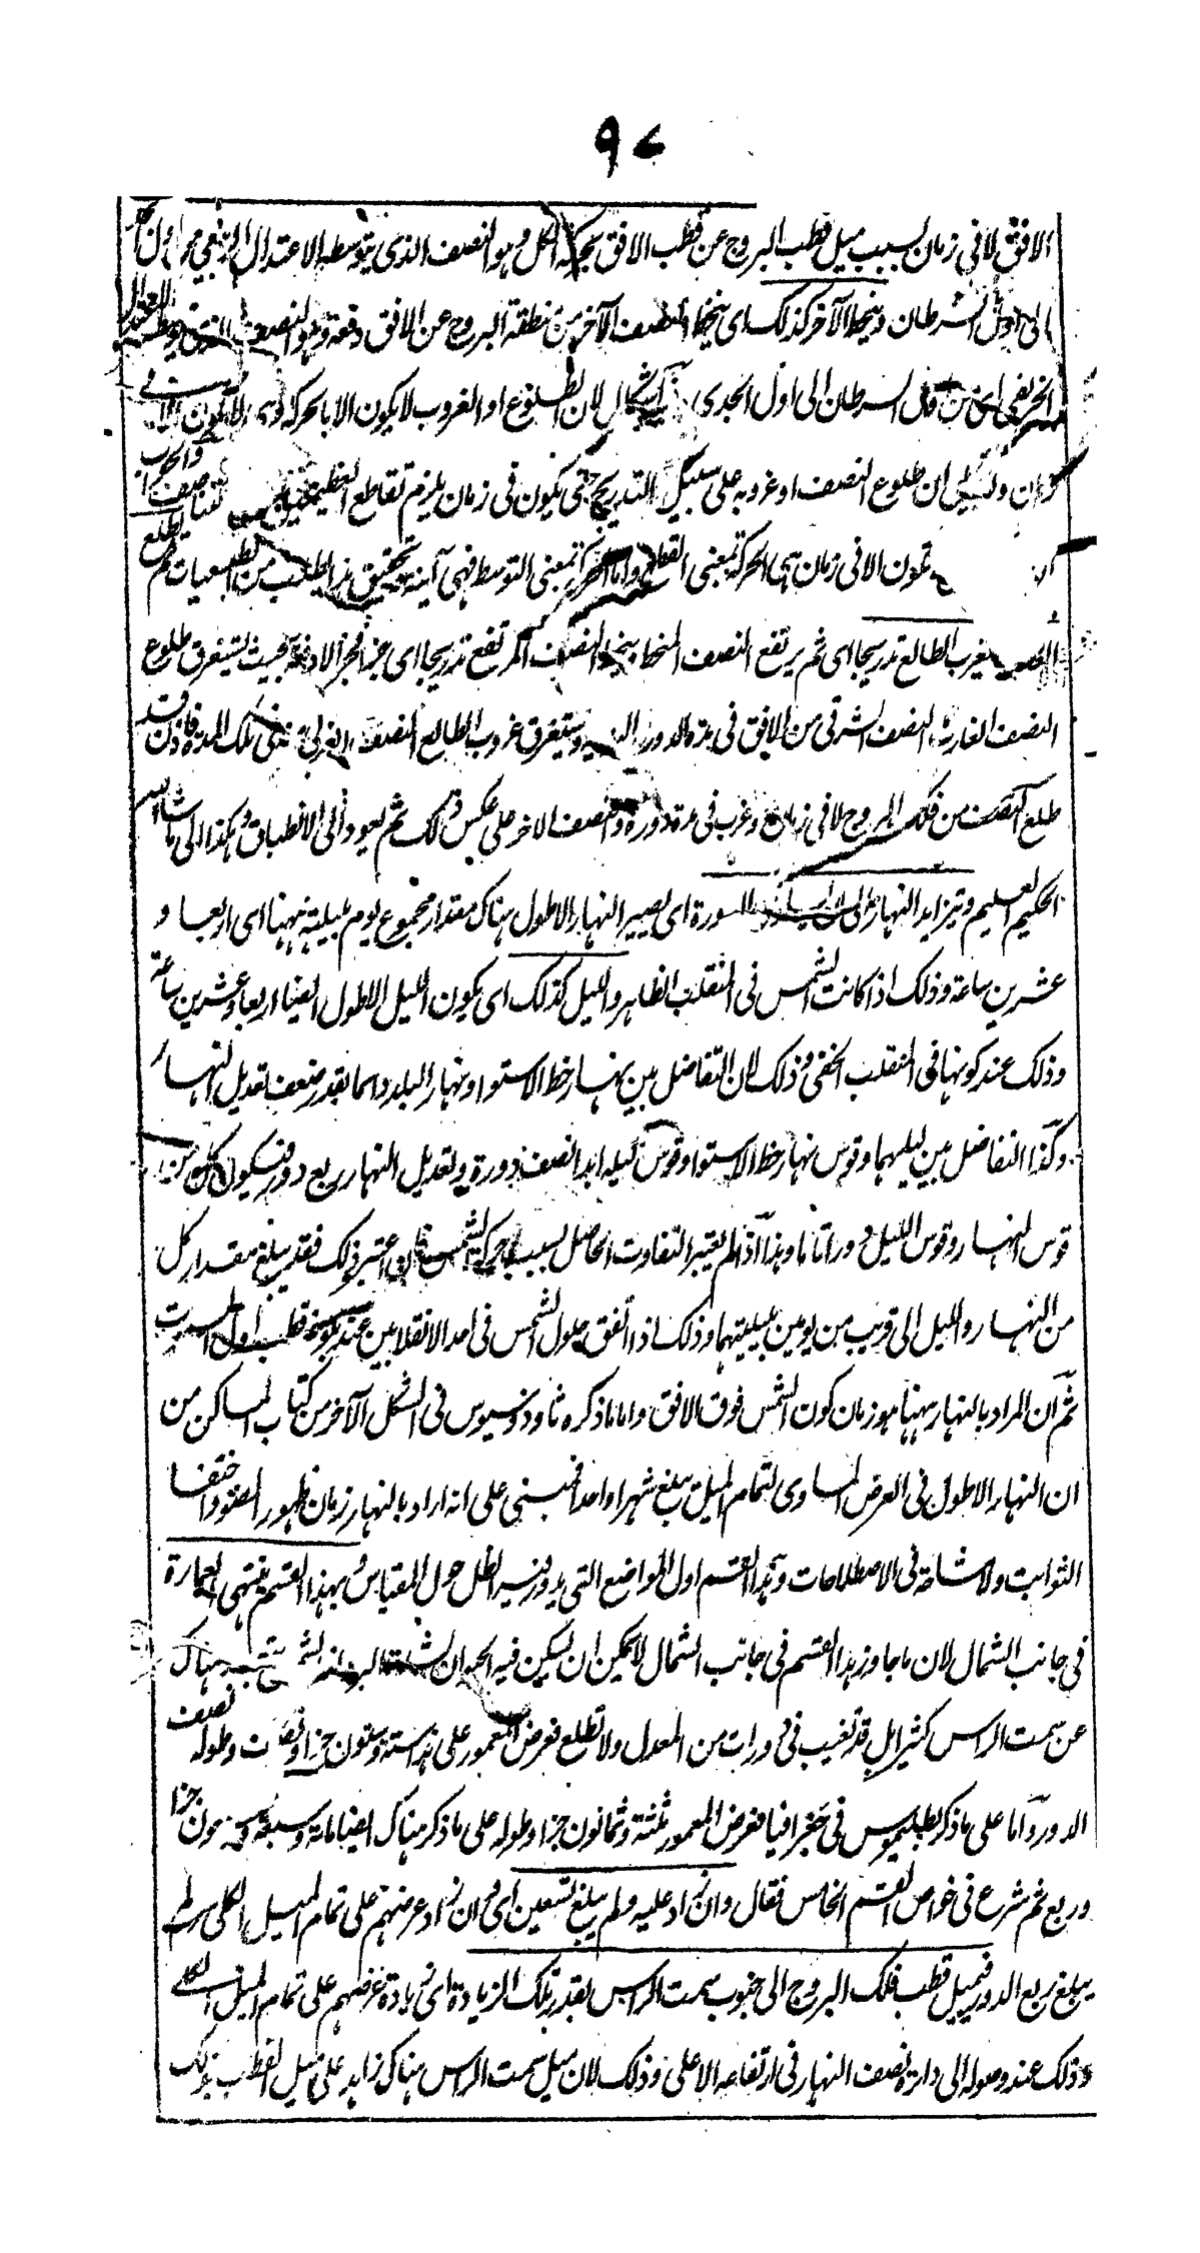 ٩٧
الافق لا فى زمان بسبب ميل قطب البروج عن قطب الافق بحركة الكل وهو النصف الذى يتوسطه الاعتدال الربيعى من اول
الى اول السرطان وينحط الآخر كذلك اى ينحط النصف الآخر من منطقة البروج عن الافق دفعة وهو النصف الذى يتوسطه الاعتدال
الخريفى اى من اول السرطان الى اول الجدى لان الطلوع او الغروب لا يكون الا بالحركة وهى لا تكون الا فى
زمان ان طلوع النصف او غروبه على سبيل التدريج حتى يكون فى زمان يلزم تقاطع العظيمتين والجواب
تكون الا فى زمان هى الحركة بمعنى القطع واما الحركة بمعنى التوسط فهى آنية وتحقيق هذا المطلب من الطبعيات ثم يطلع
يغرب الطالع تدريجا اى ثم يرتفع النصف المنحط وينحط النصف المرتفع تدريجا اى جزأ فجزأ لا دفعة بحيث يستغرق طلوع
النصف الغارب النصف الشرقى من الافق فى مدة الدورة ويستغرق غروب الطالع النصف الغربى فى تلك المدة فاذن قد
طلع نصف من فلك البروج لا فى زمان وغرب فى مدة دورة والنصف الآخر على عكس ذلك ثم يعود الى الانطباق وهكذا الى ما شاء الله
الحكيم العليم ويتزايد النهار الى الدورة اى يصير النهار الاطول هناك مقدار مجموع يوم بليلته ههنا اى اربعا و
عشرين ساعة وذلك اذا كانت الشمس فى المنقلب الظاهر والليل كذلك اى يكون الليل الاطول ايضا اربعا وعشرين ساعة
وذلك عند كونها فى المنقلب الخفى وذلك لان التفاضل بين نهار خط الاستوا ونهار البلد دائما بقدر ضعف تعديل النهار
وكذا التفاضل بين ليليهما وقوس نهار خط الاستوا وقوس ليله ابدا نصف دورة وتعديل النهار ربع دور فيكون كل من
قوس النهار وقوس الليل دورا تاما وهذا اذا لم يعتبر التفاوت الحاصل بسبب حركة الشمس فان اعتبر ذلك فقد يبلغ مقدار كل
من النهار والليل الى قريب من يومين بليلتيهما وذلك اذا اتفق حلول الشمس فى احد الانقلابين عند
ثم ان المراد بالنهار ههنا هو زمان كون الشمس فوق الافق واما ما ذكره ثاوذوسيوس فى الشكل الآخر من كتاب المساكن من
ان النهار الاطول فى العرض المساوى لتمام الميل يبلغ شهرا واحدا فمبنى على انه اراد بالنهار زمان ظهور الضوء واختفا
الثوابت ولا مشاحة فى الاصطلاحات وهذا القسم اول المواضع التى يدور فيه الظل حول المقياس وبهذا القسم ينتهى العمارة
فى جانب الشمال لان ما جاوز هذا القسم فى جانب الشمال لا يمكن ان يسكن فيه الحيوان لشدة البرد هناك
عن سمت الراس كثيرا بل قد تغيب فى دورات من المعدل ولا تطلع فعرض المعمور على هذا ستة وستون جزأ ونصف وطوله نصف
الدور واما على ما ذكر بطلميوس فى جغرافيا فعرض المعمور ثلثة وثمانون جزأ وطوله على ما ذكر هناك ايضا مائة وسبعة وسبعون جزأ
وربع ثم شرع فى خواص القسم الخامس فقال وان زاد عليه ولم يبلغ تسعين اى وان زاد عرضهم على تمام الميل الكلى ولم
يبلغ ربع الدور فيميل قطب فلك البروج الى جنوب سمت الراس بقدر تلك الزيادة اى زيادة عرضهم على تمام الميل الكلى
وذلك عند وصوله الى دائرة نصف النهار فى ارتفاعه الاعلى وذلك لان ميل سمت الراس هناك زايد على ميل القطب بتلك